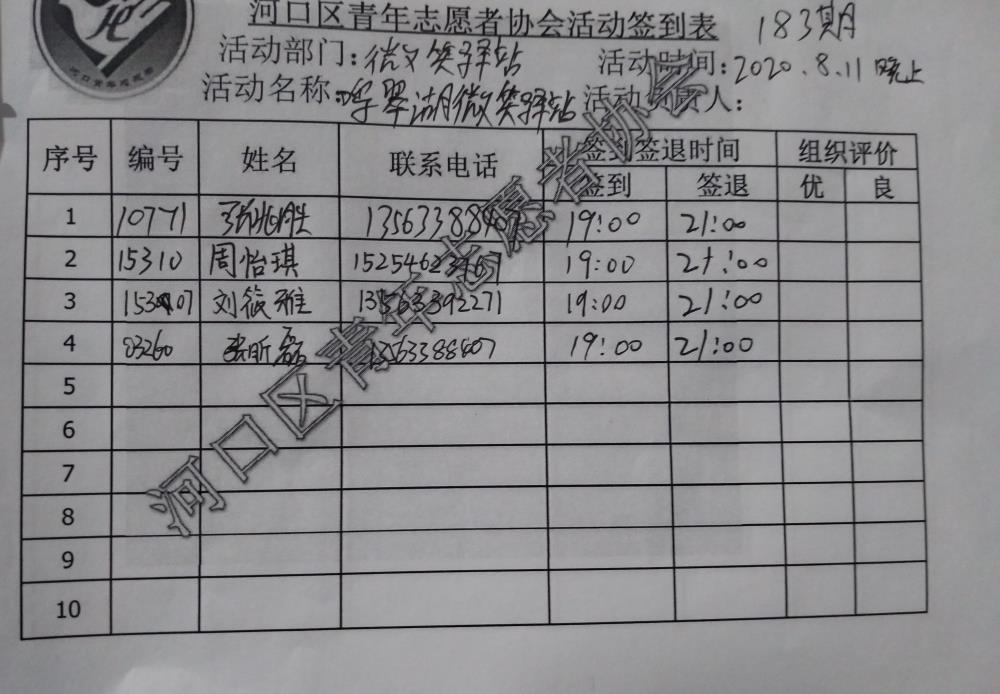 河口区青年志愿者协会活动签到表 183期
活动部门：微笑驿站 活动时间：2020.8.11晚上
活动名称：鸣翠湖微笑驿站 活动负责人：
序号 编号 姓名 联系电话 签到签退时间 组织评价
签到 签退 优 良
1 10771 张兆胜 13563388407 19:00 21:00
2 15310 周怡琪 15254623467 19:00 21:00
3 15307 刘筱雅 13563392271 19:00 21:00
4 03260 张昕磊 13563388407 19:00 21:00
5
6
7
8
9
10
河口区青年志愿者协会